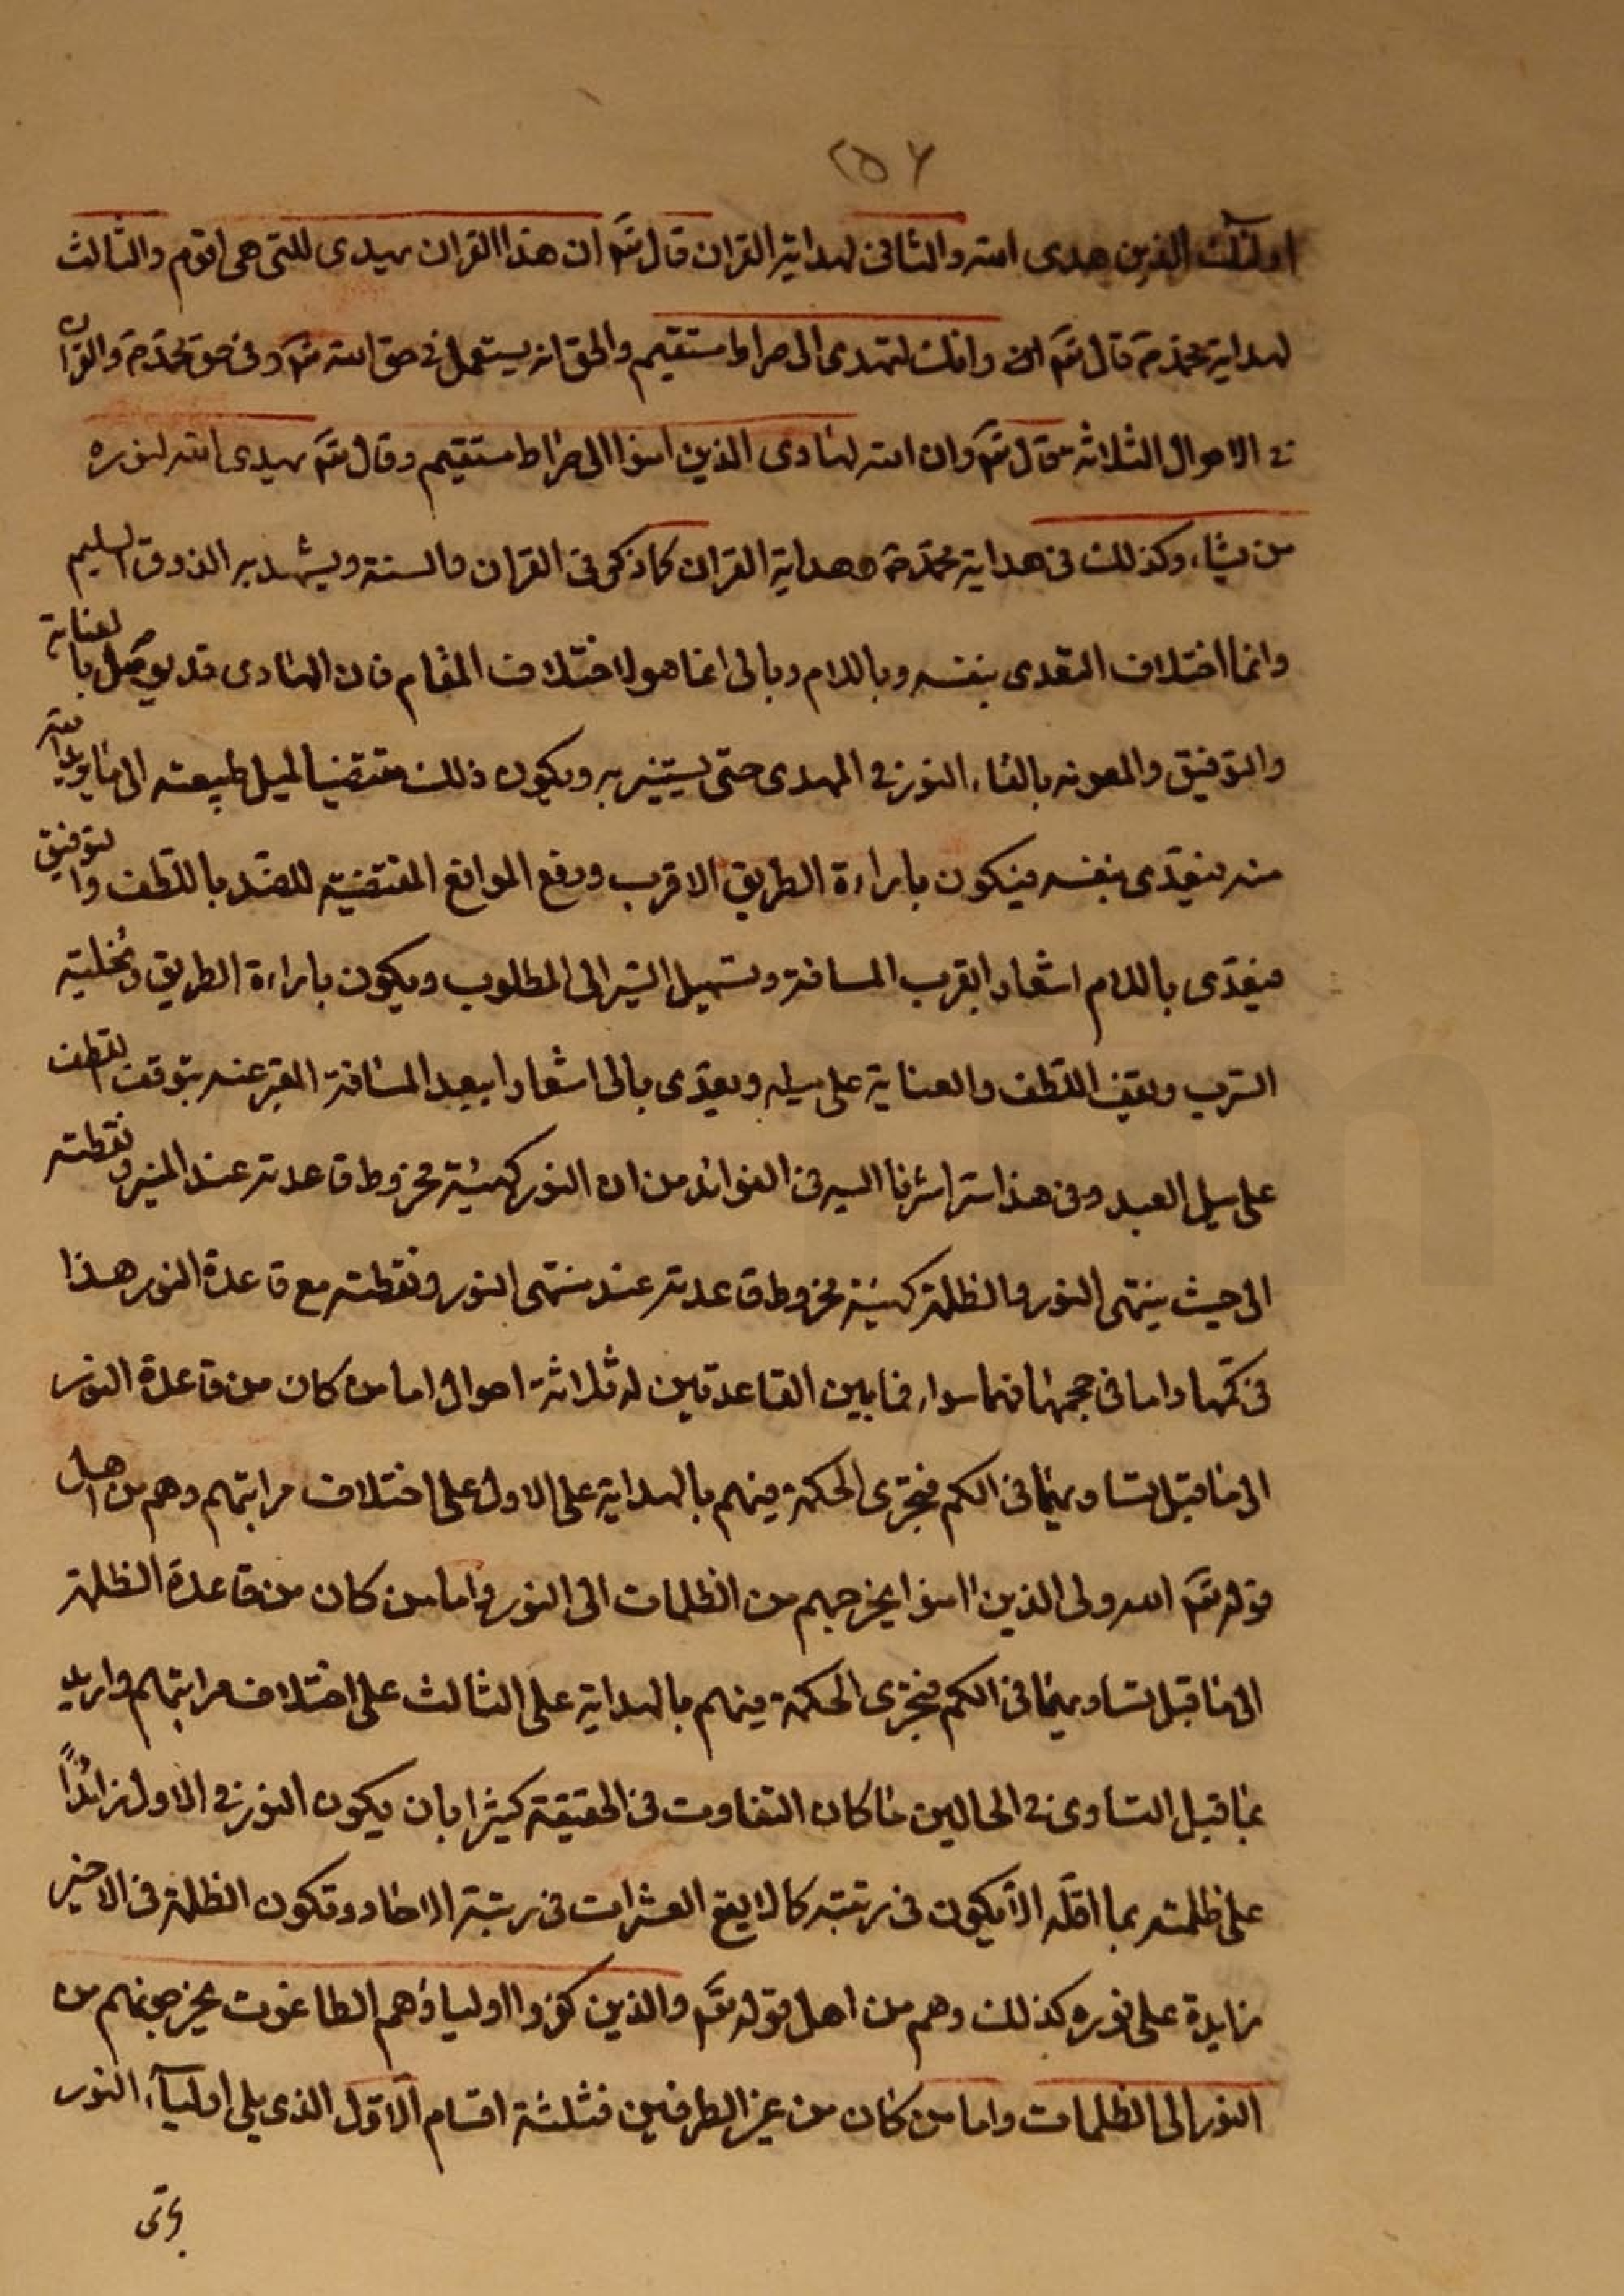 ٢٥٧
اولئك الذين هدى الله والثانى لهداية القران قال تع ان هذا القران يهدى للتى هى اقوم والثالث
لهداية محمد ص قال تع وانك لتهدى الى صراط مستقيم والحق انه يستعمل فى حق الله تع وفى حق محمد ص والقران
فى الاحوال الثلاثة فقال تع وان الله لهادى الذين امنوا الى صراط مستقيم وقال تع يهدى الله لنوره
من يشاء وكذلك فى هداية محمد ص وهداية القران كما ذكر فى القران والسنة ويشهد به الذوق السليم
وانما اختلاف التعدى بنفسه وباللام وبالى انما هو لاختلاف المقام فان الهادى قد يوصل بالعناية
والتوفيق والمعونه بالقاء النور فى المهدى حتى يستنير به ويكون ذلك مقتضيا لميل طبيعته الى ما يريد الله
منه فيعدى بنفسه فيكون باراءة الطريق الاقرب ورفع الموانع المقتضية للضد باللطف والتوفيق
فيعدى باللام اشعارا بقرب المسافة وتسهيل السير الى المطلوب ويكون باراءة الطريق وتخلية
السرب ويقف اللطف والعناية على ميله ويعدى بالى اشعارا ببعد المسافة المعبر عنه بتوقف اللطف
على ميل العبد وفى هذا سر اشرنا اليه فى الفوائد من ان النور كهيئة مخروط قاعدته عند المنير ونقطته
الى حيث ينتهى النور والظلمة كهيئة مخروط قاعدته عند منتهى النور ونقطته مع قاعدة النور هذا
فى كمها واما فى حجمها فهما سواء فما بين القاعدتين له ثلاثة احوال اما من كان من قاعدة النور
الى ما قبل تساويهما فى الكم فتجرى الحكمة فيهم بالهداية على الاول على اختلاف مراتبهم وهم من اهل
قوله تع الله ولى الذين امنوا يخرجهم من الظلمات الى النور واما من كان من قاعدة الظلمة
الى ما قبل تساويهما فى الكم فتجرى الحكمة فيهم بالهداية على الثالث على اختلاف مراتبهم واريد
بما قبل التساوى فى الحالين ما كان التفاوت فى الحقيقة كثيرا بان يكون النور فى الاول زائدا
على ظلمته بما اقله الا يكون فى رتبته كما لا يقع العشرات فى رتبة الاحاد وتكون الظلمة فى الاخير
زايدة على نوره كذلك وهم من اهل قوله تع والذين كفروا اولياؤهم الطاغوت يخرجونهم من
النور الى الظلمات واما من كان من غير الطرفين فثلثة اقسام الاول الذى يلى اولياء النور